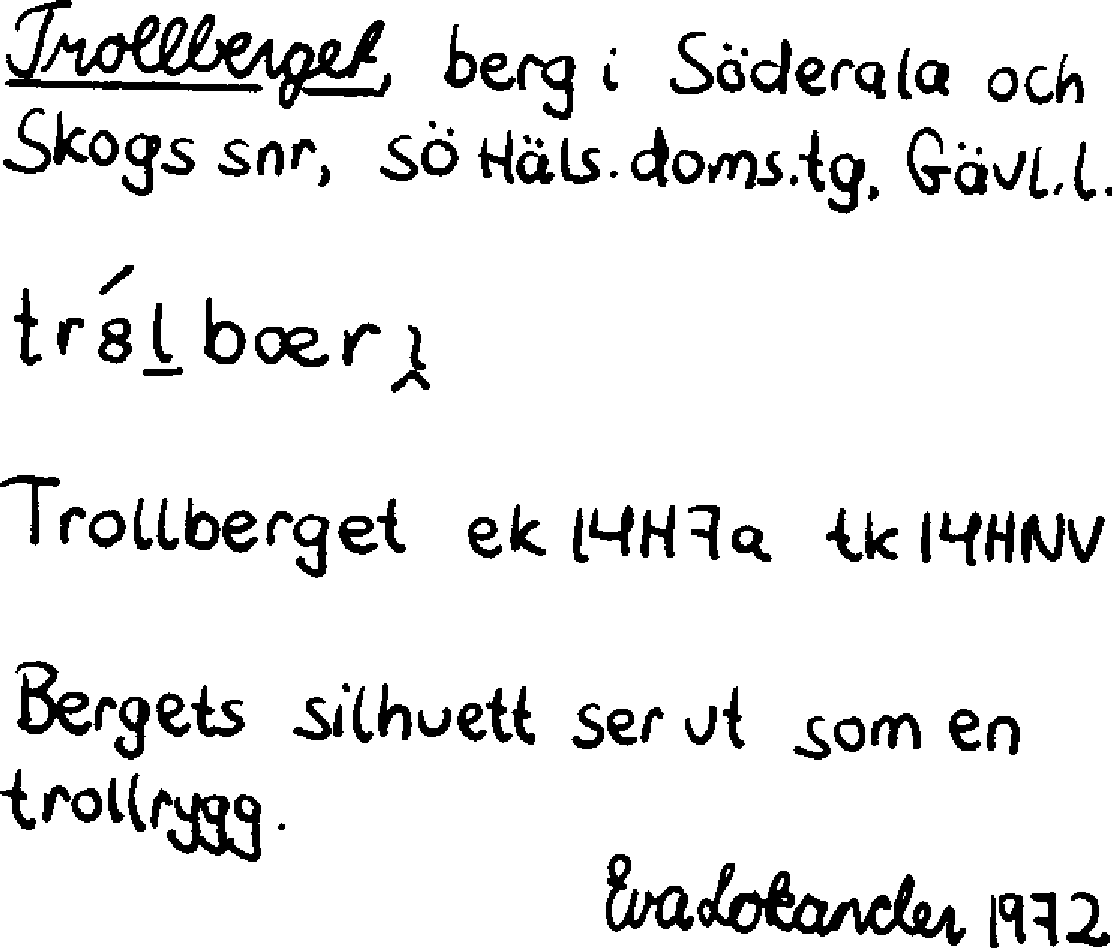 Trollberget, berg i Söderala och
Skogs snr, sö Häls. doms.tg, Gävl.l.
tr8́l̲ bærı̭
Trollberget ek 14H7a tk 14HNV
Bergets silhuett ser ut som en
trollrygg.
Eva Lokander 1972